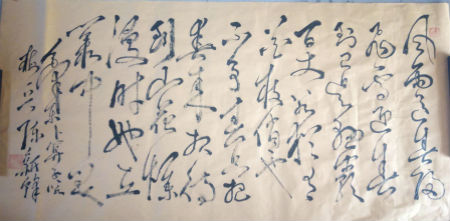 风雨送春归
飞雪迎春
到已是悬崖
百丈冰犹有
花枝俏也
不争春只把
春来报待
到山花烂
漫时她在
丛中笑
毛泽东卜算子咏
梅 陈